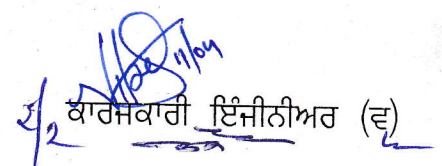 11/04
ਕਾਰਜਕਾਰੀ ਇੰਜੀਨੀਅਰ (ਵ)